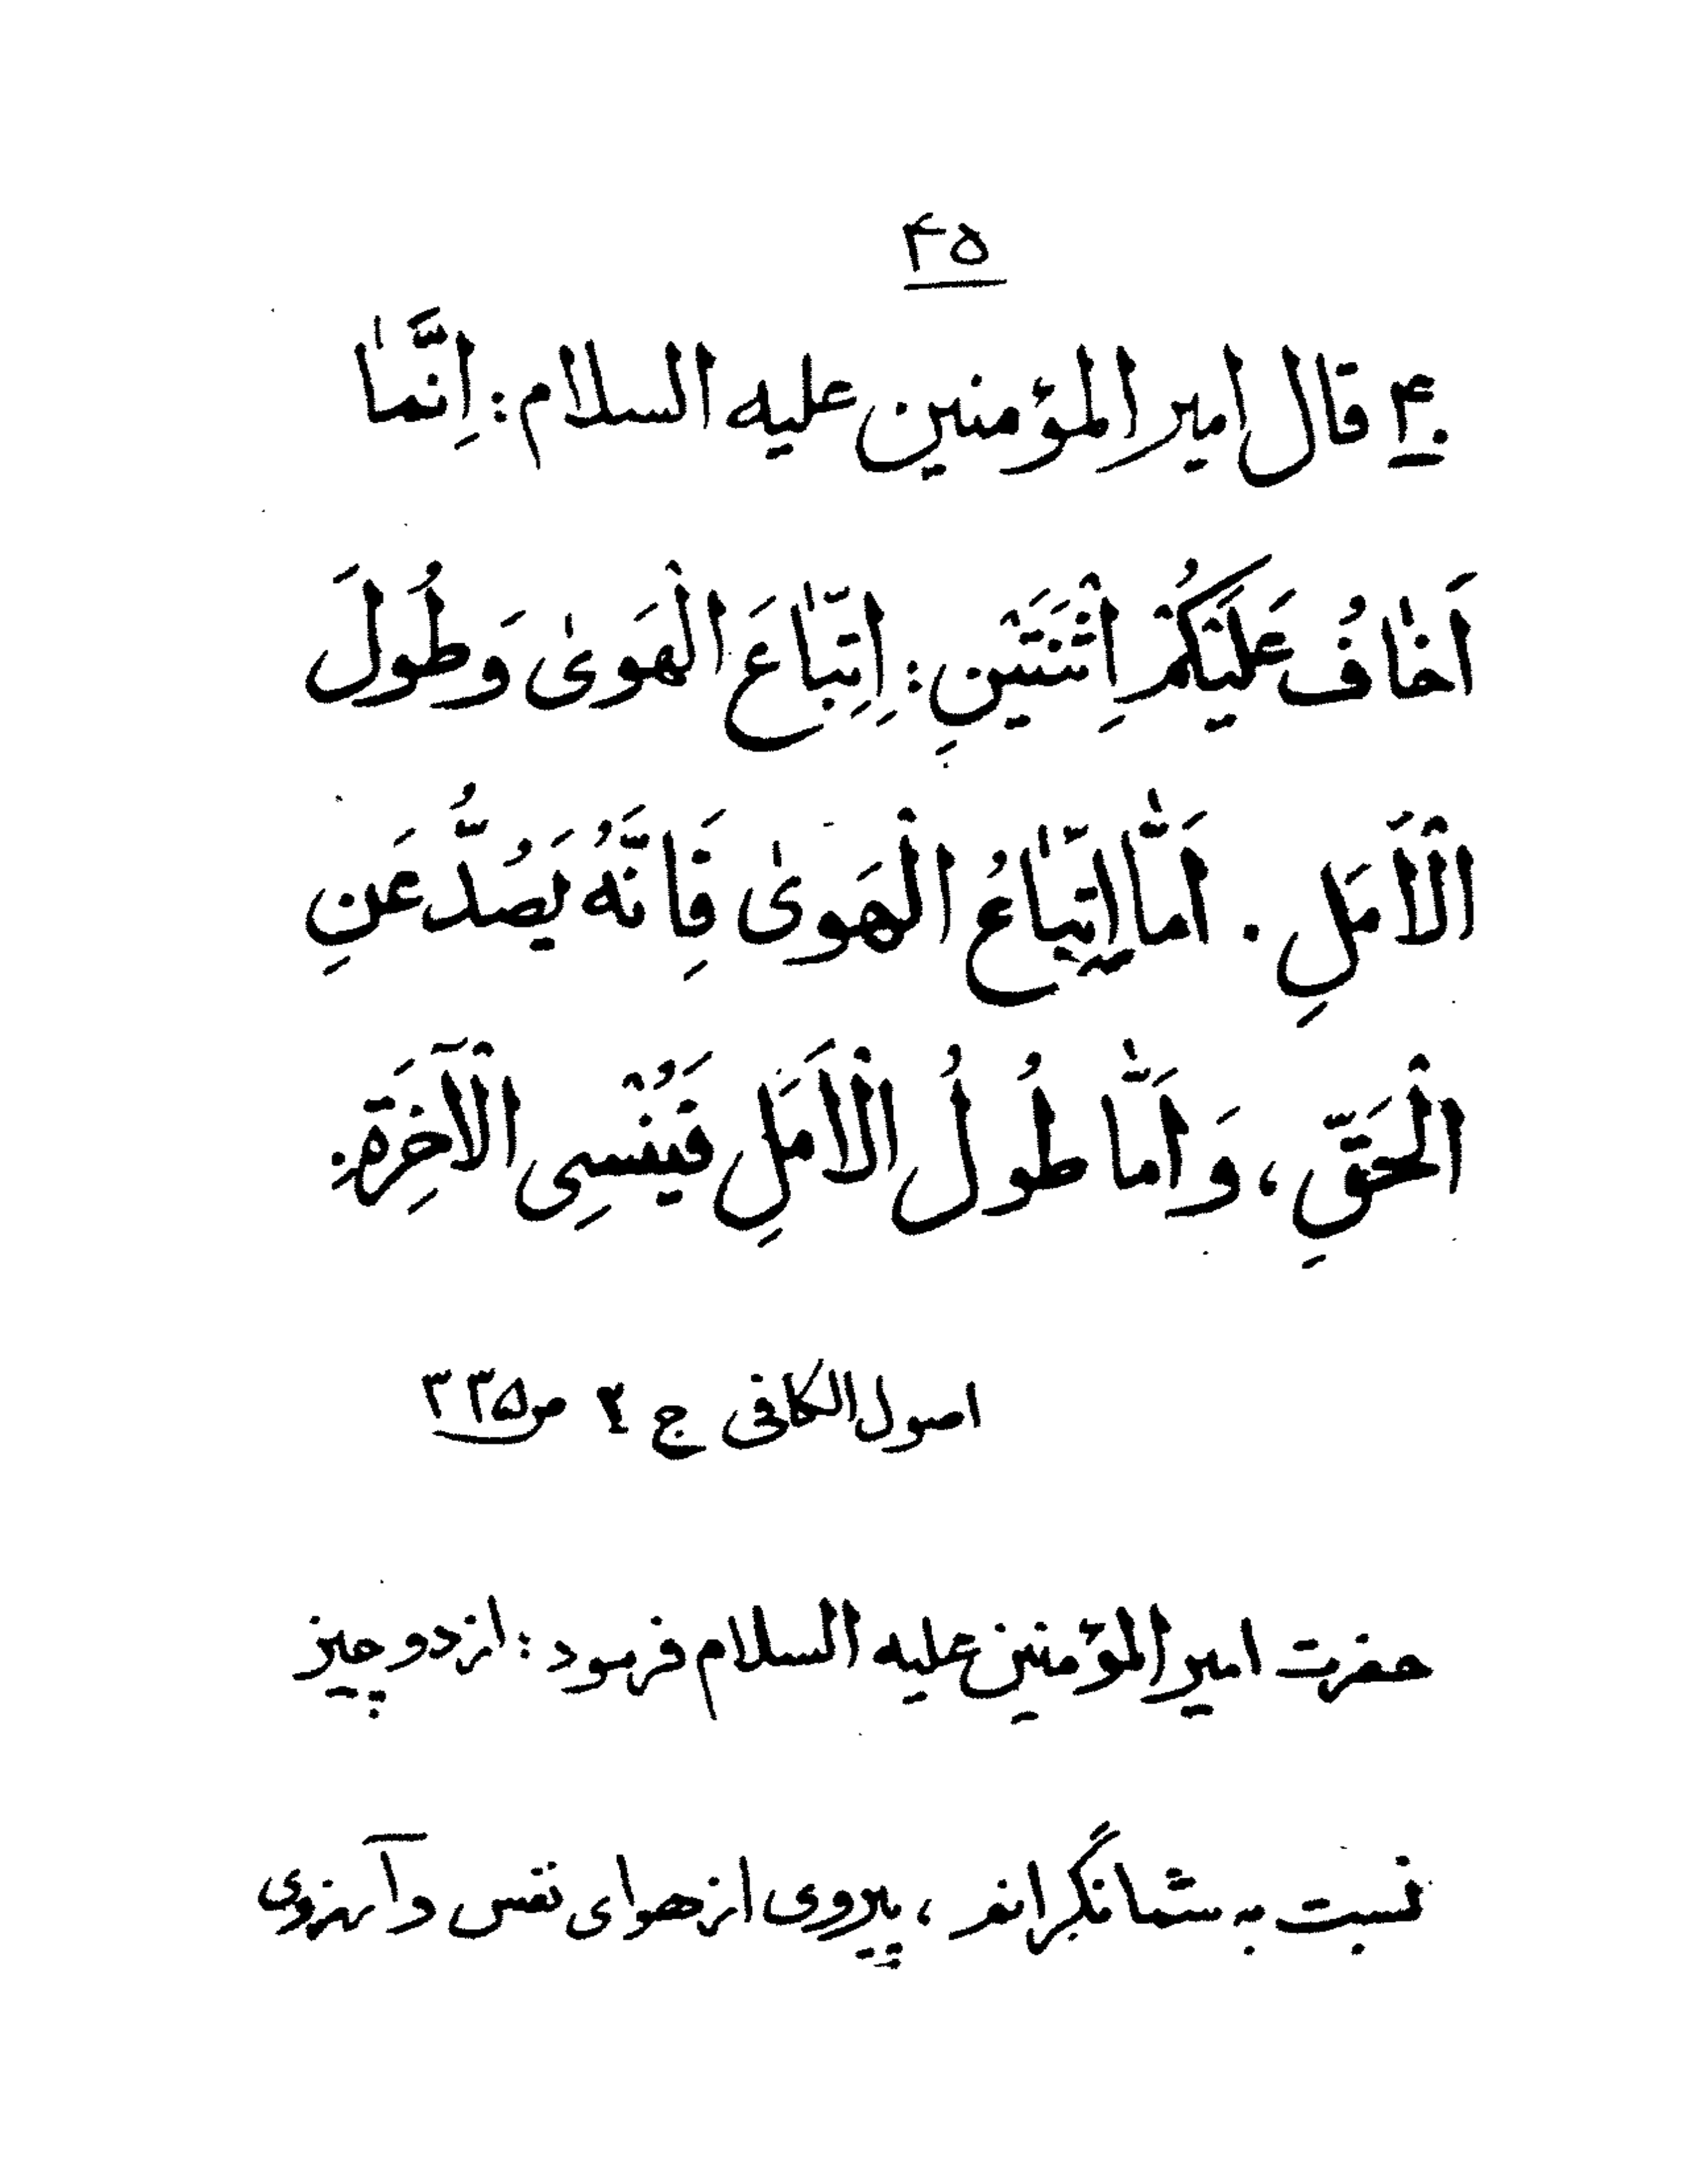 ۴۵
۴۰ قال امیر المؤمنین علیه السلام : اِنَّمٰا
اَخٰافُ عَلَیْکُمْ اِثْنَتَیْنِ : اِتِّبٰاعَ الْهَوىٰ وَ طُولَ
الْاَمَلِ . اَمّٰا اِتِّبٰاعُ الْهَوىٰ فَاِنَّهُ یَصُدُّ عَنِ
الْحَقِّ ، وَ اَمّٰا طُولُ الْاَمَلِ فَیُنْسِى الْآخِرَةَ .
اصول الکافى ج ۲ ص ۳۳۵
حضرت امیر المؤمنین علیه السلام فرمود : از دو چیز
نسبت به شما نگرانم ، پیروى از هواى نفس و آرزوى